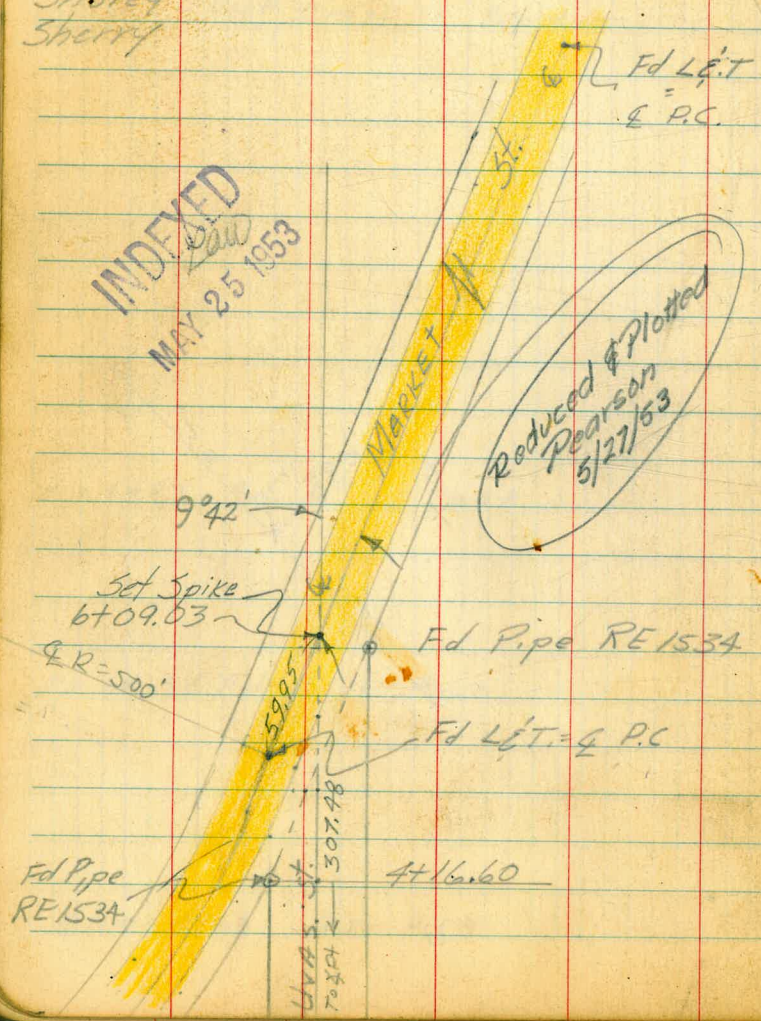 Sherry
Fd L&T
=
℄ P.C.
INDEXED
MAY 25 1953
Market St.
℄
Reduced & Plotted
Pearson
5/27/53
9°42'
Set Spike
6+09.03
℄
Fd Pipe RE 1534
℄ R=500'
59.95
Fd L&T. = ℄ P.C
307.48
4+16.60
Fd Pipe
RE 1534
UVAS. St.